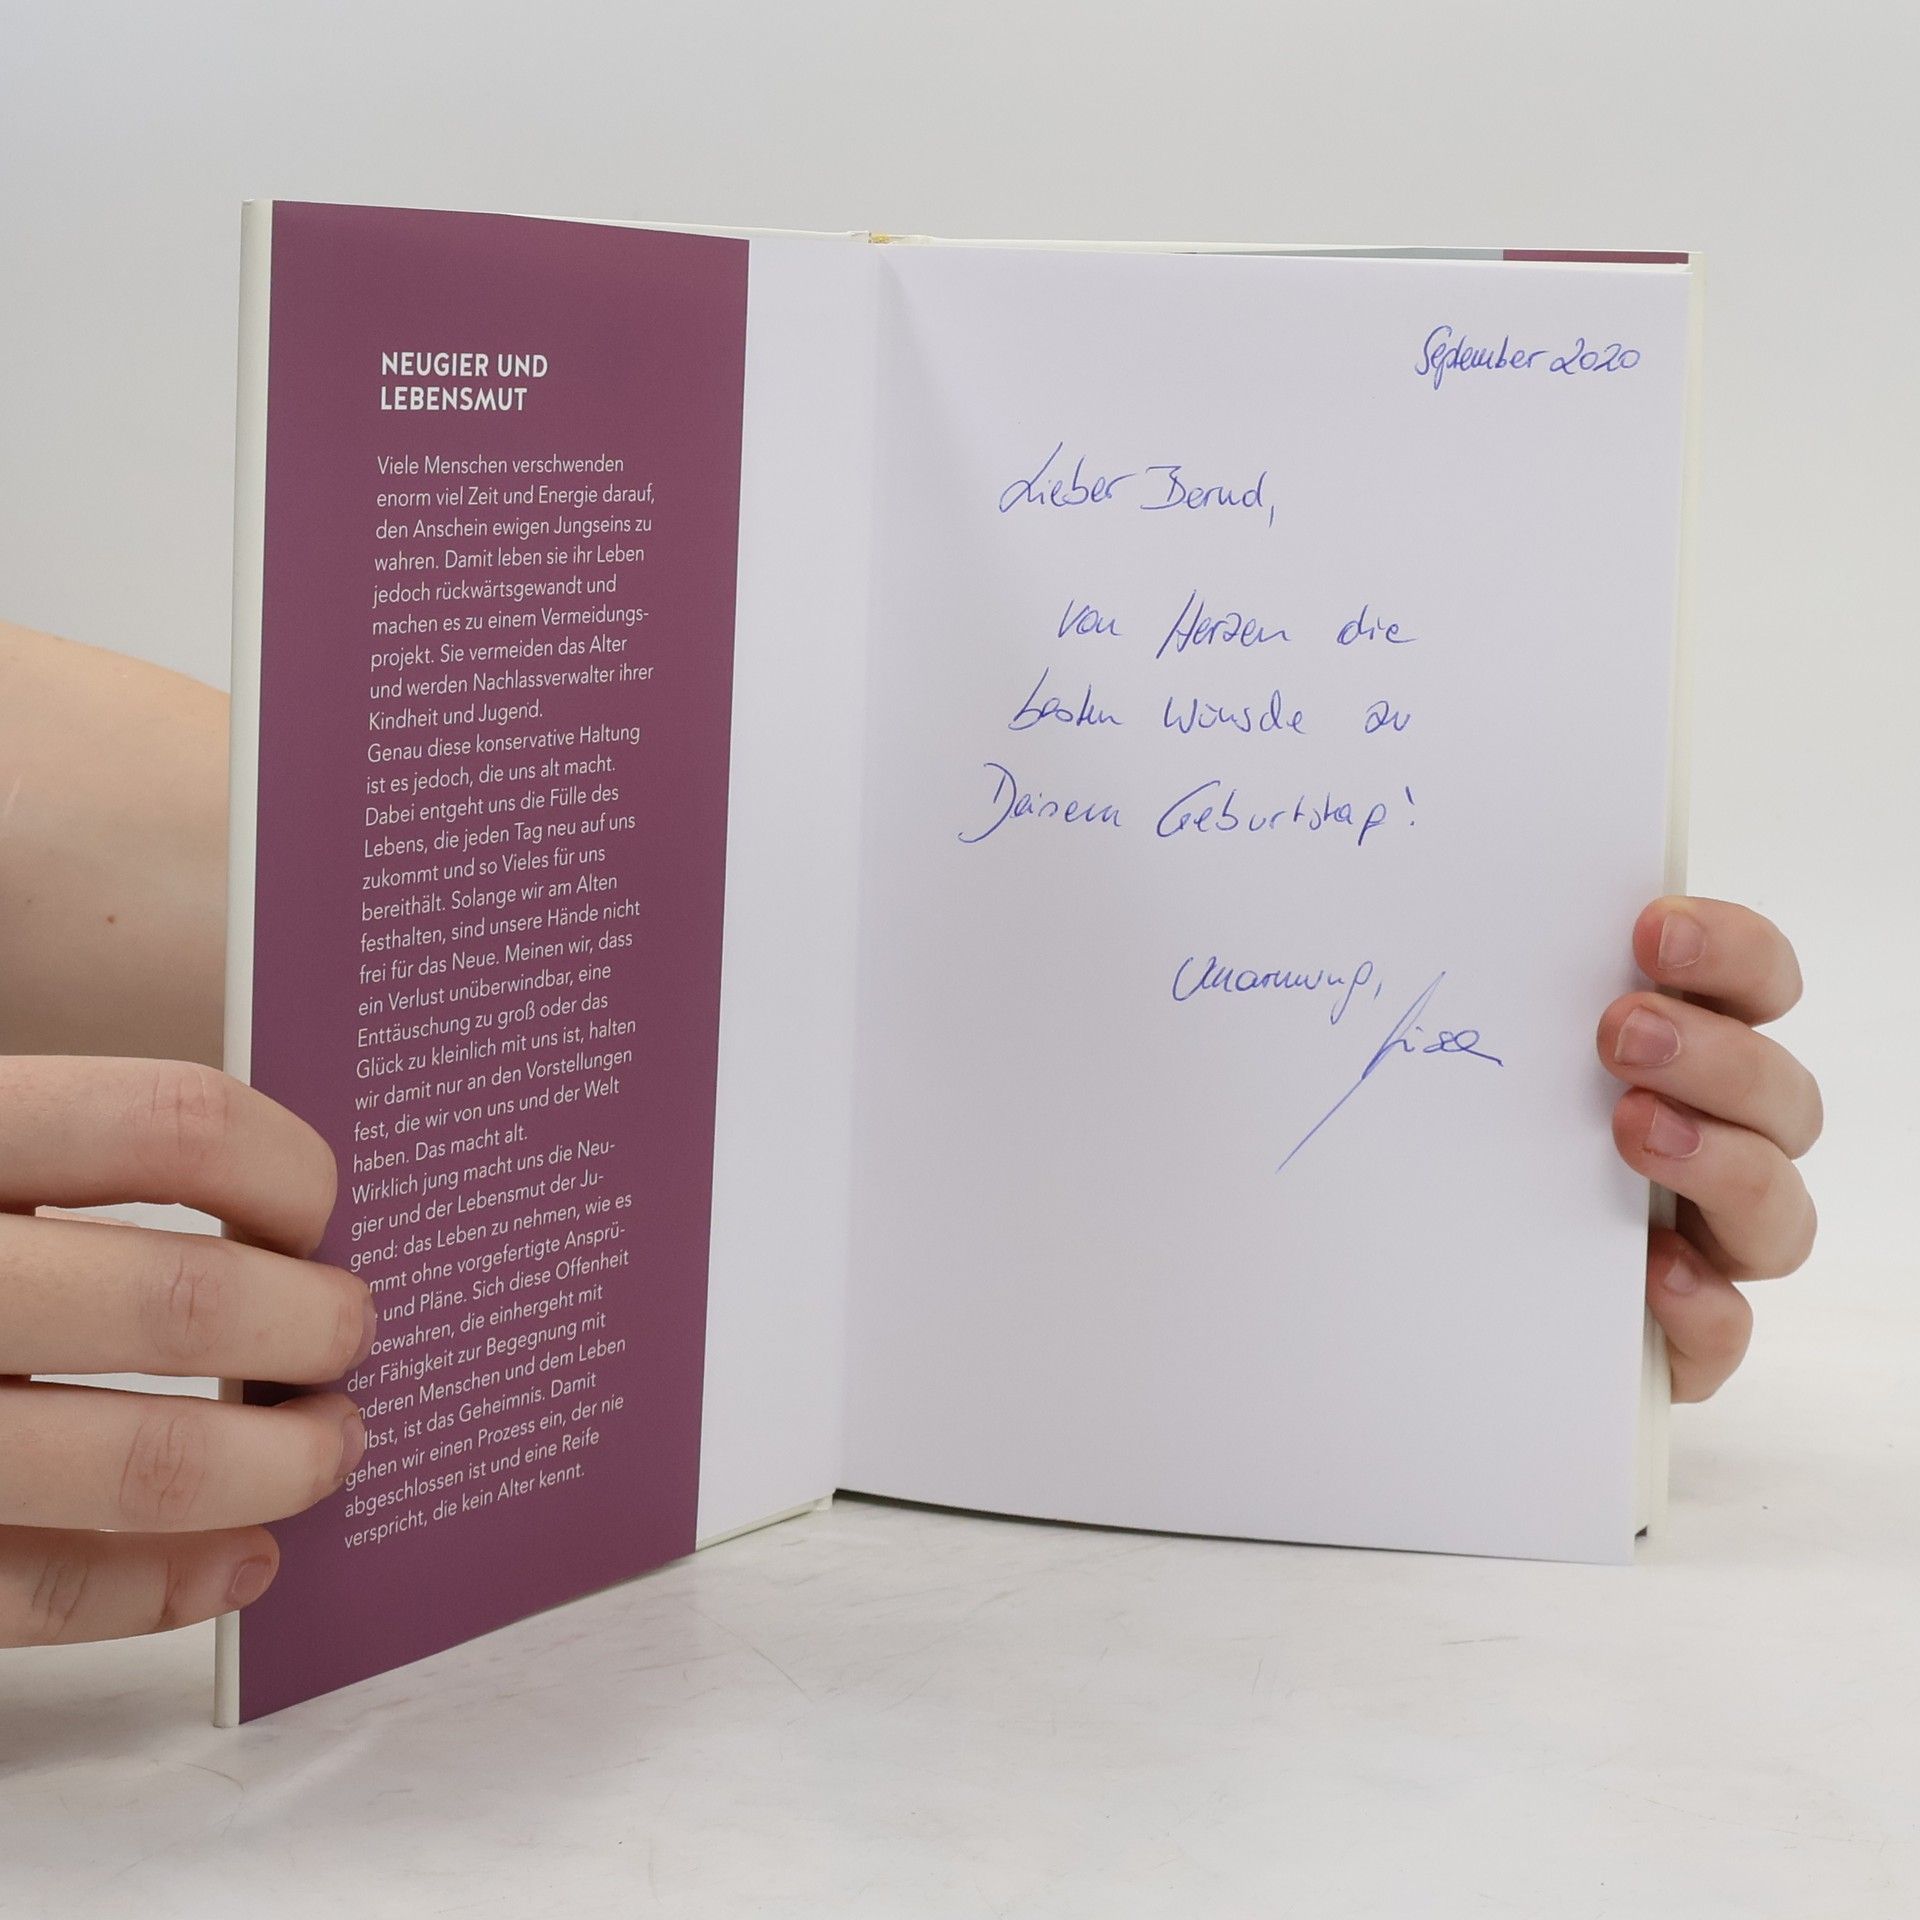 NEUGIER UND
LEBENSMUT
Viele Menschen verschwenden
enorm viel Zeit und Energie darauf,
den Anschein ewigen Jungseins zu
wahren. Damit leben sie ihr Leben
jedoch rückwärtsgewandt und
machen es zu einem Vermeidungs-
projekt. Sie vermeiden das Alter
und werden Nachlassverwalter ihrer
Kindheit und Jugend.
Genau diese konservative Haltung
ist es jedoch, die uns alt macht.
Dabei entgeht uns die Fülle des
Lebens, die jeden Tag neu auf uns
zukommt und so Vieles für uns
bereithält. Solange wir am Alten
festhalten, sind unsere Hände nicht
frei für das Neue. Meinen wir, dass
ein Verlust unüberwindbar, eine
Enttäuschung zu groß oder das
Glück zu kleinlich mit uns ist, halten
wir damit nur an den Vorstellungen
fest, die wir von uns und der Welt
haben. Das macht alt.
Wirklich jung macht uns die Neu-
gier und der Lebensmut der Ju-
gend: das Leben zu nehmen, wie es
mmt ohne vorgefertigte Ansprü-
und Pläne. Sich diese Offenheit
bewahren, die einhergeht mit
der Fähigkeit zur Begegnung mit
nderen Menschen und dem Leben
lbst, ist das Geheimnis. Damit
gehen wir einen Prozess ein, der nie
abgeschlossen ist und eine Reife
verspricht, die kein Alter kennt.
September 2020
Lieber Bernd,
von Herzen die
besten Wünsche zu
Deinem Geburtstag!
Umarmung,